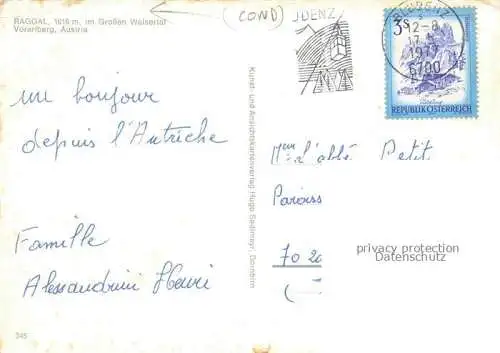 RAGGAL, 1016 m, im Großen Walsertal
Vorarlberg, Austria
(COND)
UDENZ
3s
12-8
1977
6700
REPUBLIK ÖSTERREICH
un bonjour
depuis l'Autriche
Famille
Alessandrini Henri
Kunst- und Ansichtskartenverlag Hugo Sedlmayr, Dornbirn
l'abbé Petit
Paroiss
70 20
privacy protection
Datenschutz
345